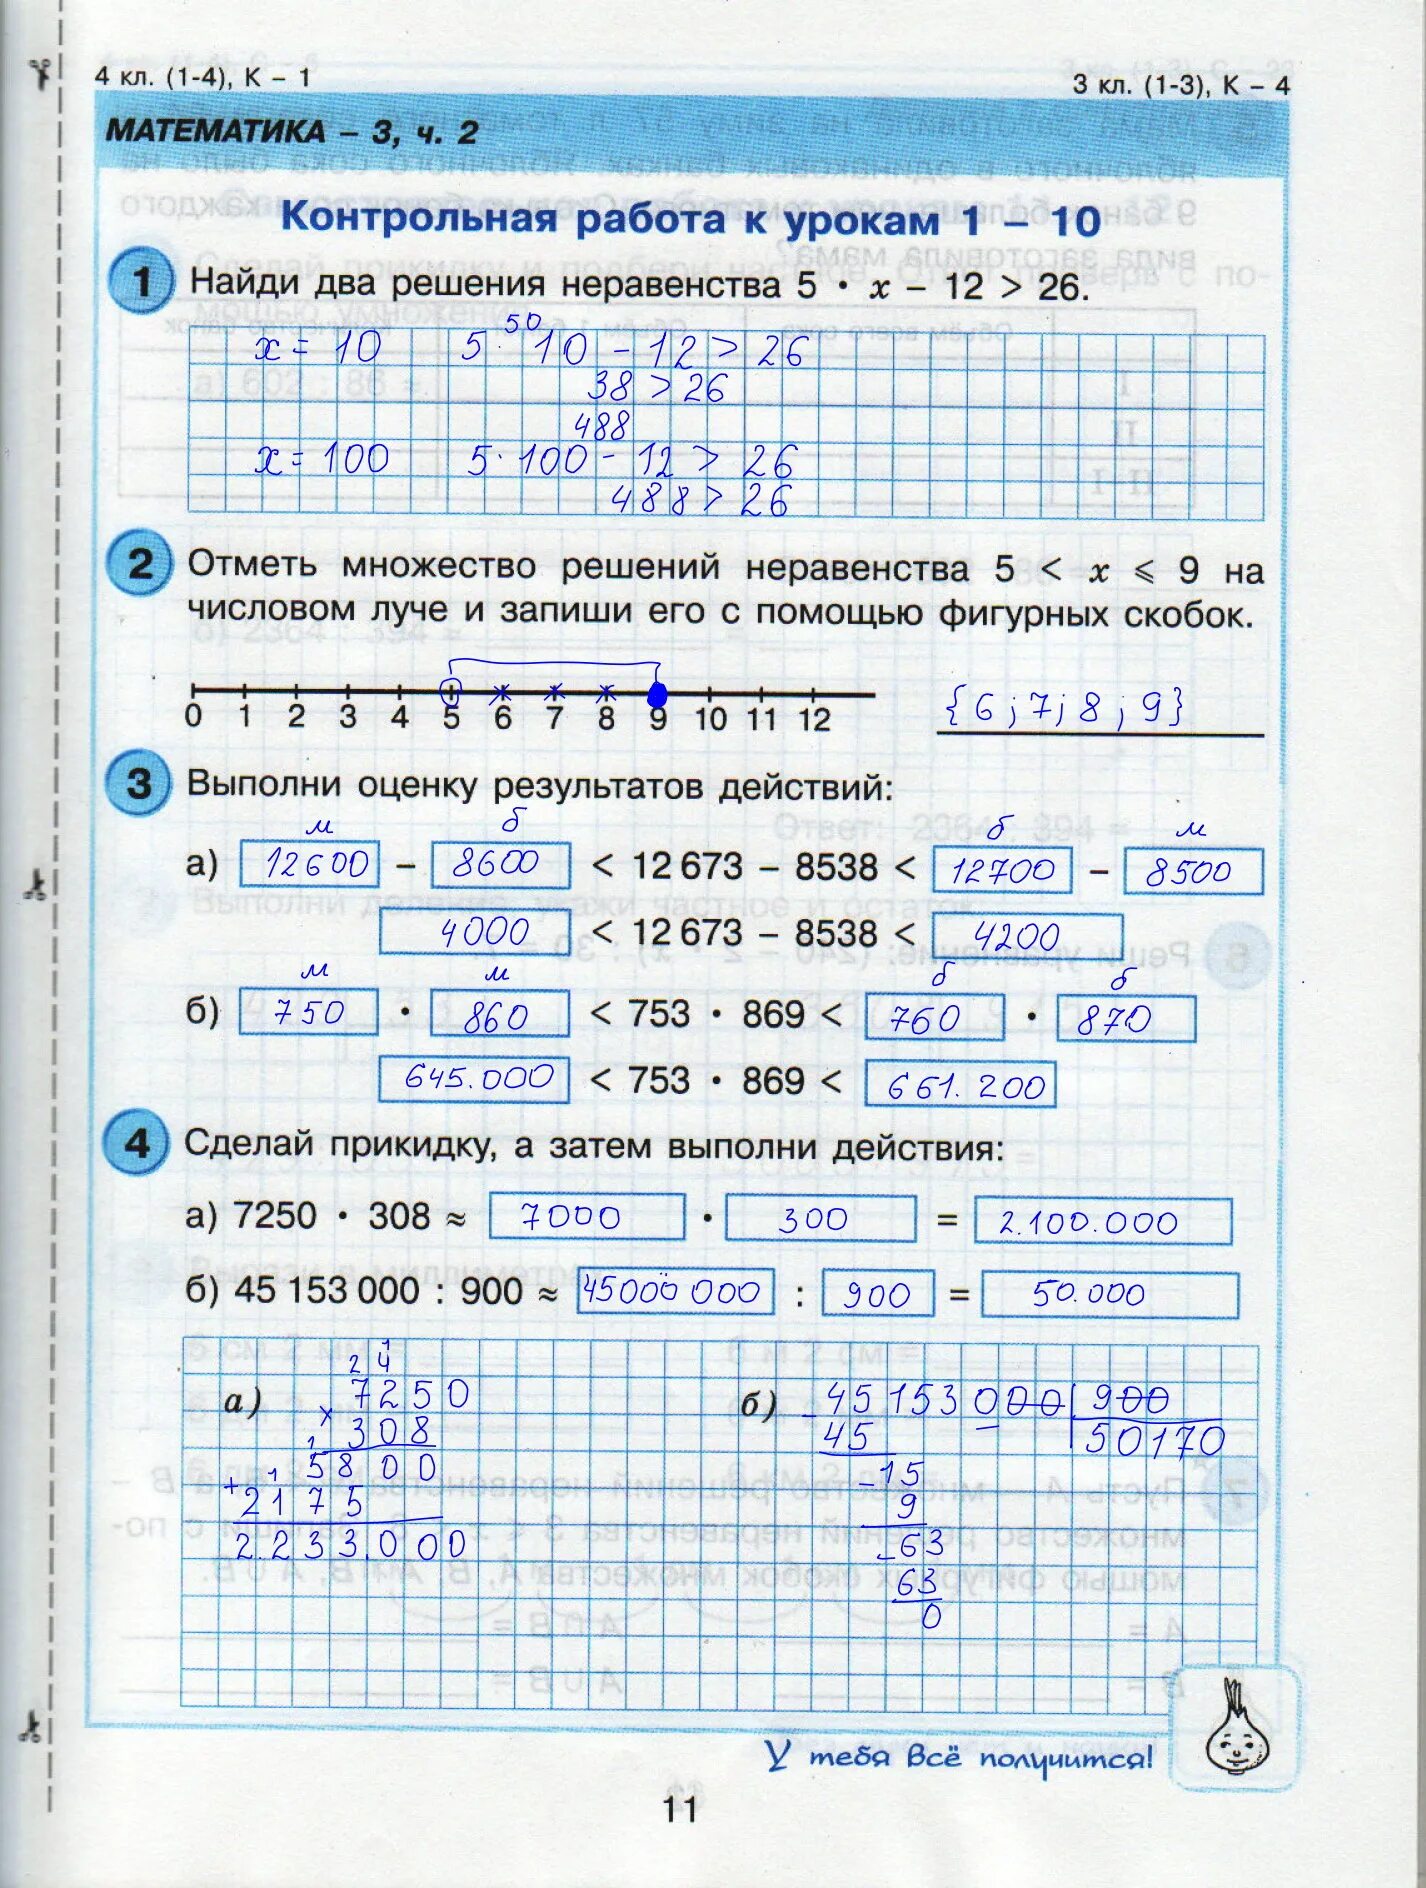 4 кл. (1-4), К – 1
3 кл. (1-3), К – 4
МАТЕМАТИКА – 3, ч. 2
Контрольная работа к урокам 1 – 10
1 Найди два решения неравенства 5 · x – 12 > 26.
50
x = 10 5 · 10 – 12 > 26
38 > 26
488
x = 100 5 · 100 – 12 > 26
488 > 26
2 Отметь множество решений неравенства 5 < x ⩽ 9 на
числовом луче и запиши его с помощью фигурных скобок.
0 1 2 3 4 5 6 7 8 9 10 11 12
{6; 7; 8; 9}
3 Выполни оценку результатов действий:
м б б м
а) 12600 – 8600 < 12 673 – 8538 < 12700 – 8500
4000 < 12 673 – 8538 < 4200
м м б б
б) 750 · 860 < 753 · 869 < 760 · 870
645.000 < 753 · 869 < 661.200
4 Сделай прикидку, а затем выполни действия:
а) 7250 · 308 ≈ 7000 · 300 = 2.100.000
б) 45 153 000 : 900 ≈ 45000 000 : 900 = 50.000
1
2 4
а) 7250
х 308
1
1
5800
+ 2175
2.233.000
б) 45153000 900
– 45 50170
– 15
9
– 63
63
0
У тебя всё получится!
11